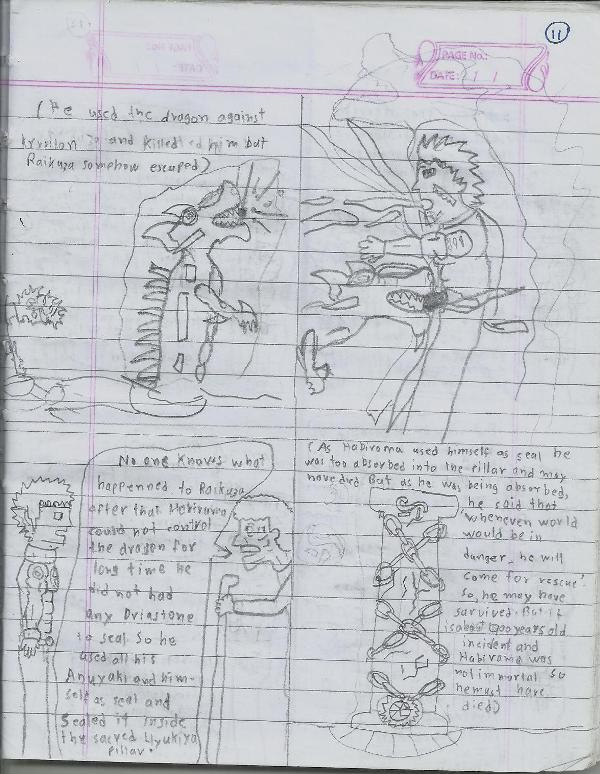 11
PAGE No.:
DATE: / /
(He used the dragon against
and killed him but
Raikuza somehow escaped)
No one knows what
happenned to Raikuza
after that Habirama
could not control
the dragon for
long time he
did not had
any
to seal. So he
used all his
Anuyaki and him-
self as seal and
Sealed it inside
the sacred
pillar.
(As Habirama used himself as seal he
was too absorbed into the pillar and may
have died But as he was being absorbed,
he said that
whenever world
would be in
danger, he will
come for rescue.
So, he may have
survived. But it
is about years old
incident and
Habirama was
not immortal so
he must have
died)